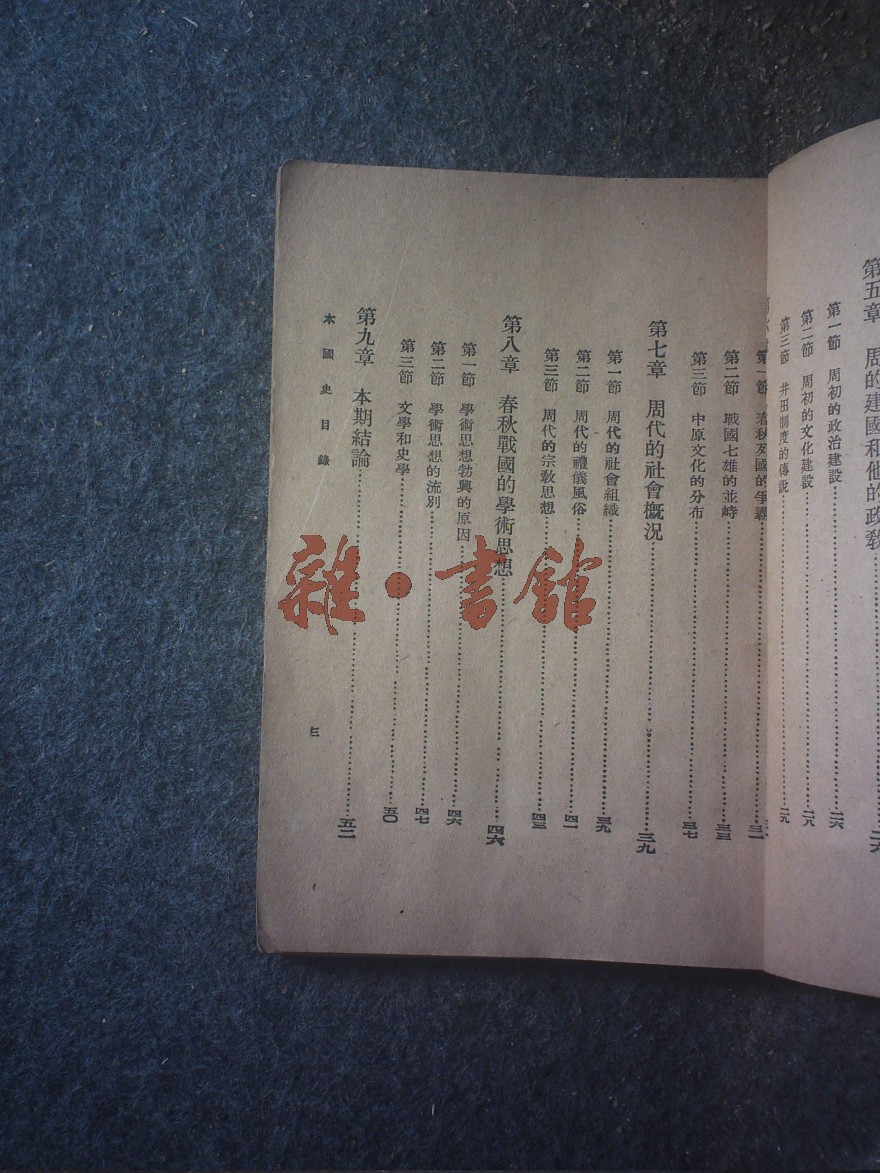 第五章 周的建國和他的政敎 二六
第一節 周初的政治建設 二六
第二節 周初的文化建設 二八
第三節 井田制度的傳說 二九
第一節 春秋列國的爭霸 三一
第二節 戰國七雄的並峙 三三
第三節 中原文化的分布 三七
第七章 周代的社會概況 三九
第一節 周代的社會組織 三九
第二節 周代的禮儀風俗 四一
第三節 周代的宗敎思想 四三
第八章 春秋戰國的學術思想 四六
第一節 學術思想勃興的原因 四六
第二節 學術思想的流別 四七
第三節 文學和史學 五〇
第九章 本期結論 五二
本國史目錄 三
雜·書館